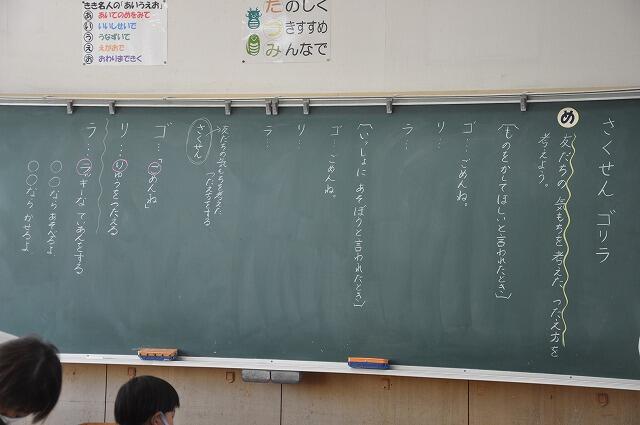 きき名人の「あいうえお」
あ あいてのめをみて
い いいしせいで
う うなずいて
え えがおで
お おわりまできく
たのしく
つきすすめ
みんなで
さくせん ゴリラ
め 友だちの気もちを考えた つたえ方を
考えよう。
(ものをかしてほしいと言われたとき)
ゴ…ごめんね。
リ…
ラ…
(いっしょにあそぼうと言われたとき)
ゴ…ごめんね。
リ…
ラ…
友だちの気もちを考えた
つたえ方をする
さくせん
ゴ…「ごめんね」
リ…りゆうをつたえる
ラ…ラッキーなていあんをする
○○ならあそべるよ
○○ならかせるよ